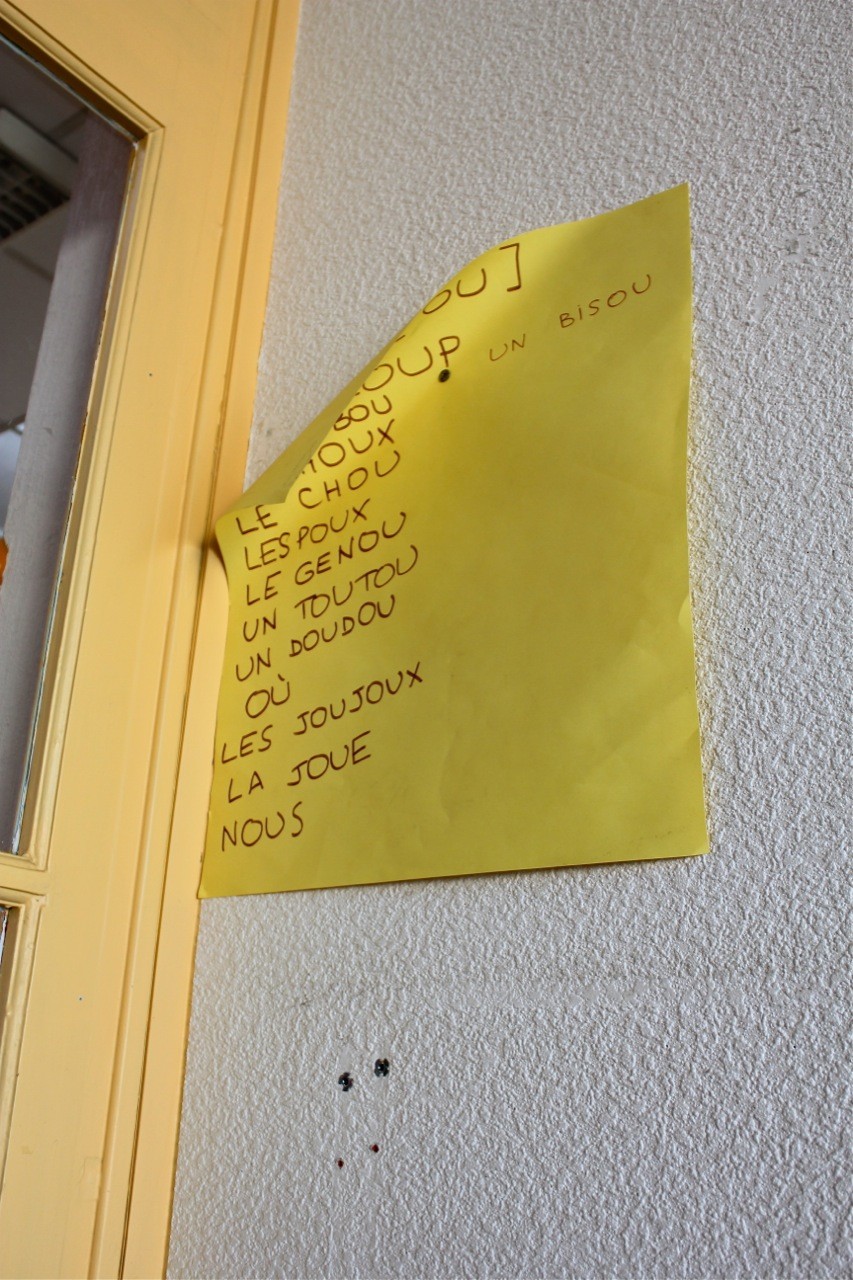 OU]
OUP UN BISOU
BOU
OUX
LE CHOU
LES POUX
LE GENOU
UN TOUTOU
UN DOUDOU
OÙ
LES JOUJOUX
LA JOUE
NOUS